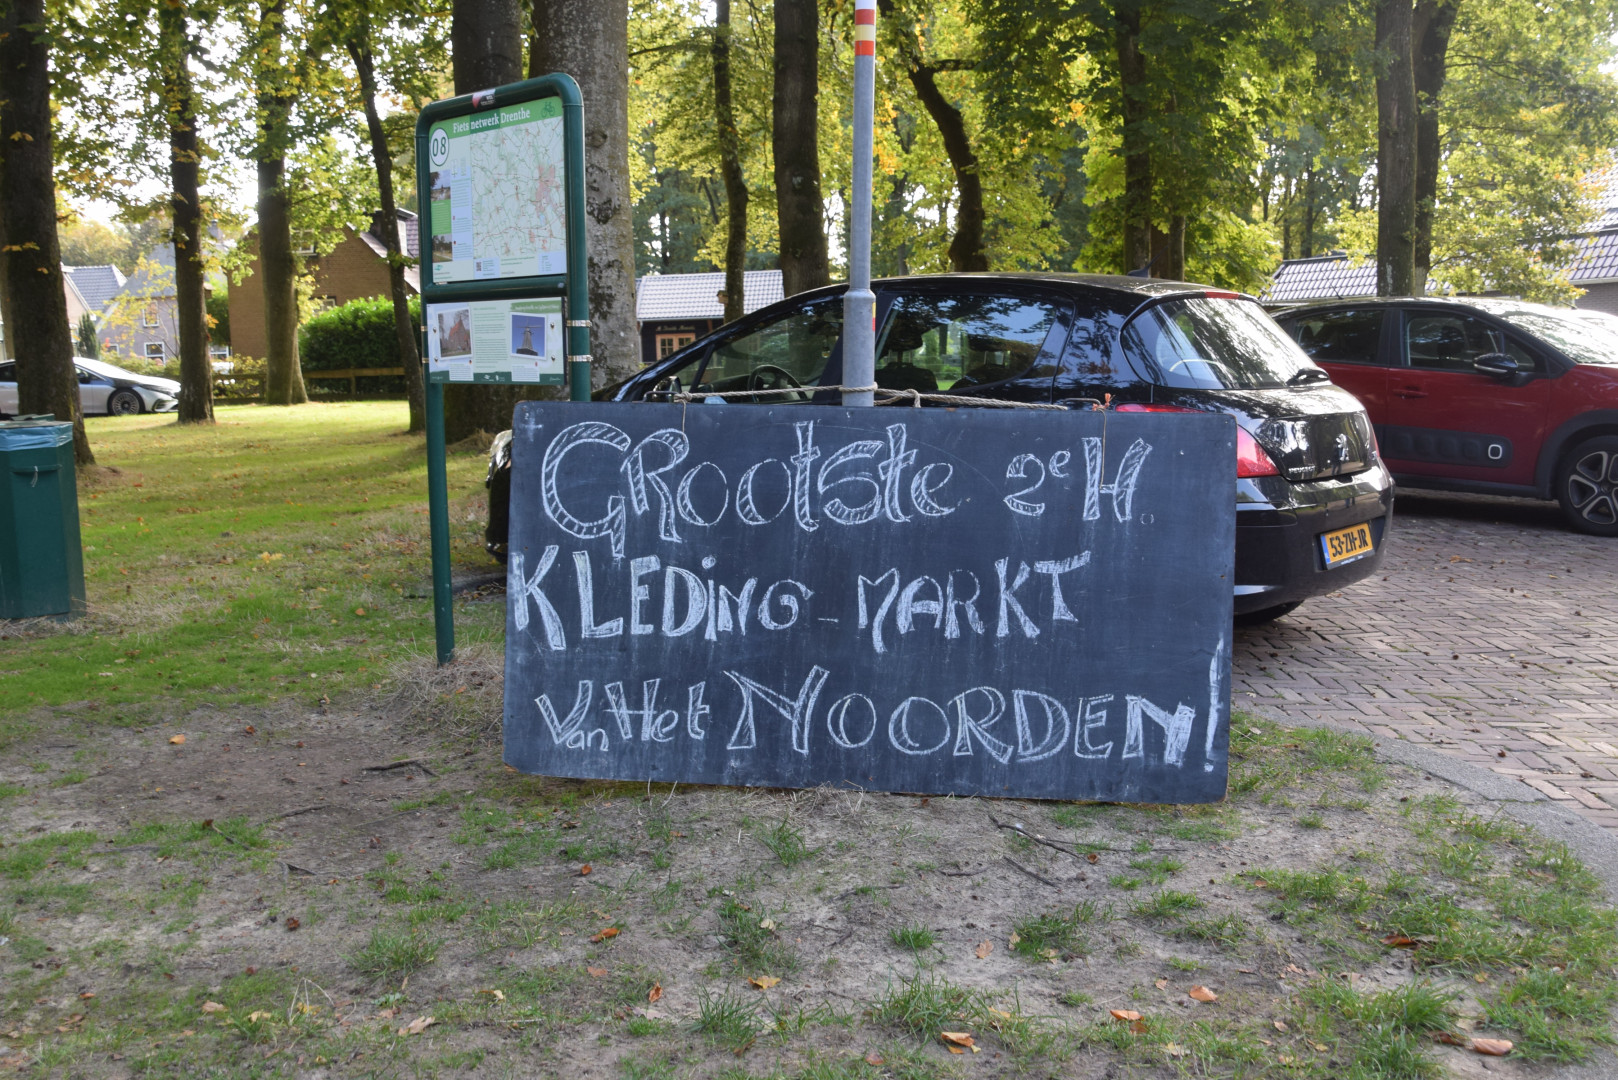 Fietsnetwerk Drenthe
08
GRootste 2e H.
KLEDiNG-MARKT
Van Het NOORDEN!
PEUGEOT
53-ZH-JR